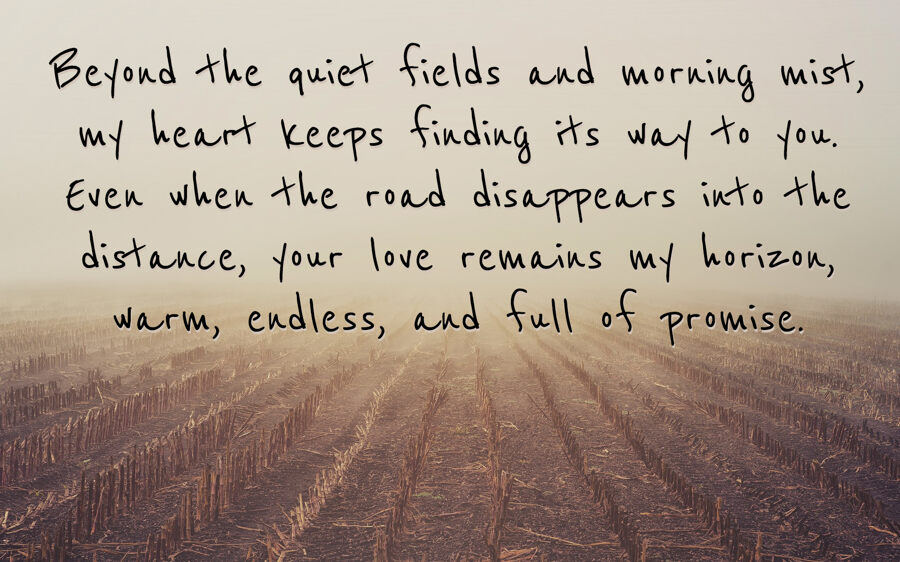 Beyond the quiet fields and morning mist,
my heart keeps finding its way to you.
Even when the road disappears into the
distance, your love remains my horizon,
warm, endless, and full of promise.